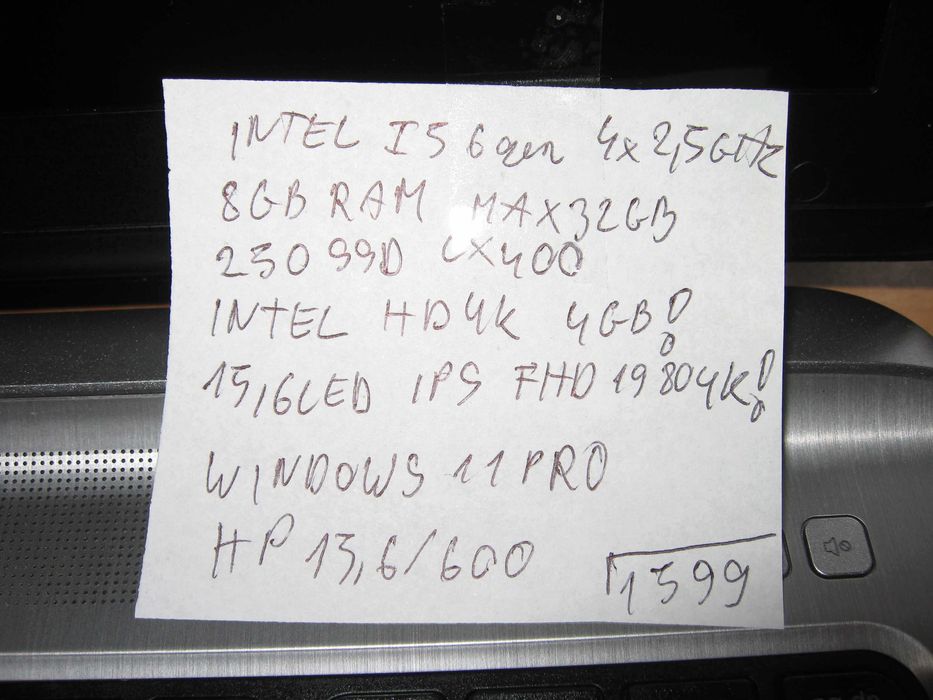 INTEL I5 6gen 4x2,5GHz
8GB RAM MAX32GB
250 SSD CX400
INTEL HD4K 4GB!
15,6LED IPS FHD 19804K!
WINDOWS 11 PRO
HP 15,6/600
1599